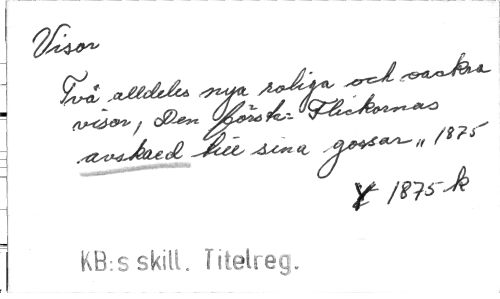 Visor
Två alldeles nya roliga och vackra
visor, Den första: Flickornas
avsked till sina gossar „ 1875
Y 1875 k
KB:s skill. Titelreg.